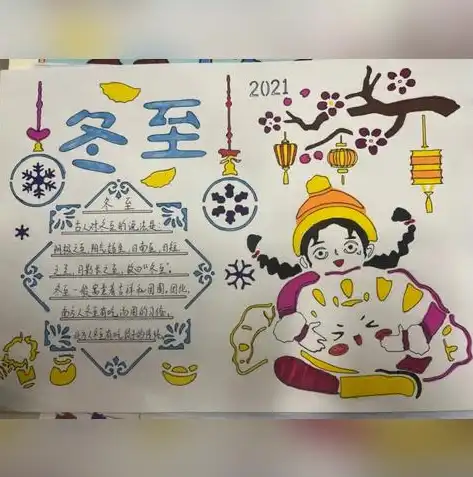 2021
冬至
冬至
古人对冬至的说法是:
阴极之至,阳气始生,日南至,日短
之至,日影长之至,故曰“冬至”。
冬至一般寓意着吉祥和团圆,团结,
南方人冬至有吃汤圆的习俗,
北方人冬至有吃饺子的传统